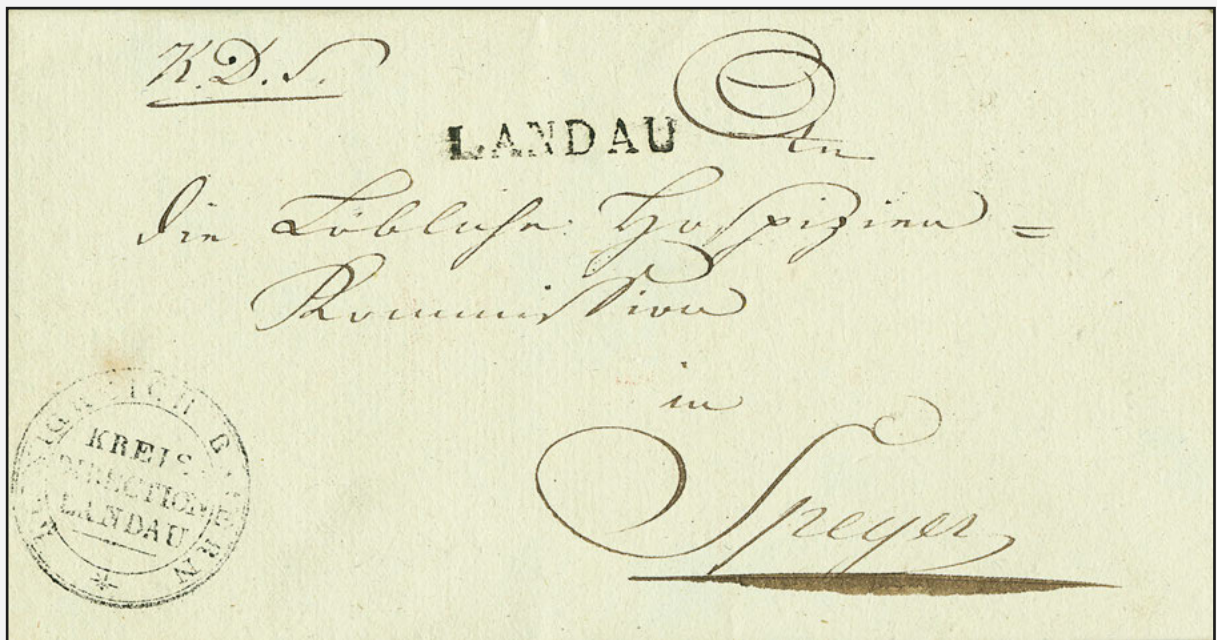 K.D.S.
LANDAU
An
die Löbliche Hospizien=
Kommission
in
Speyer
KÖNIGREICH BAYERN
KREIS
DIRECTION
LANDAU